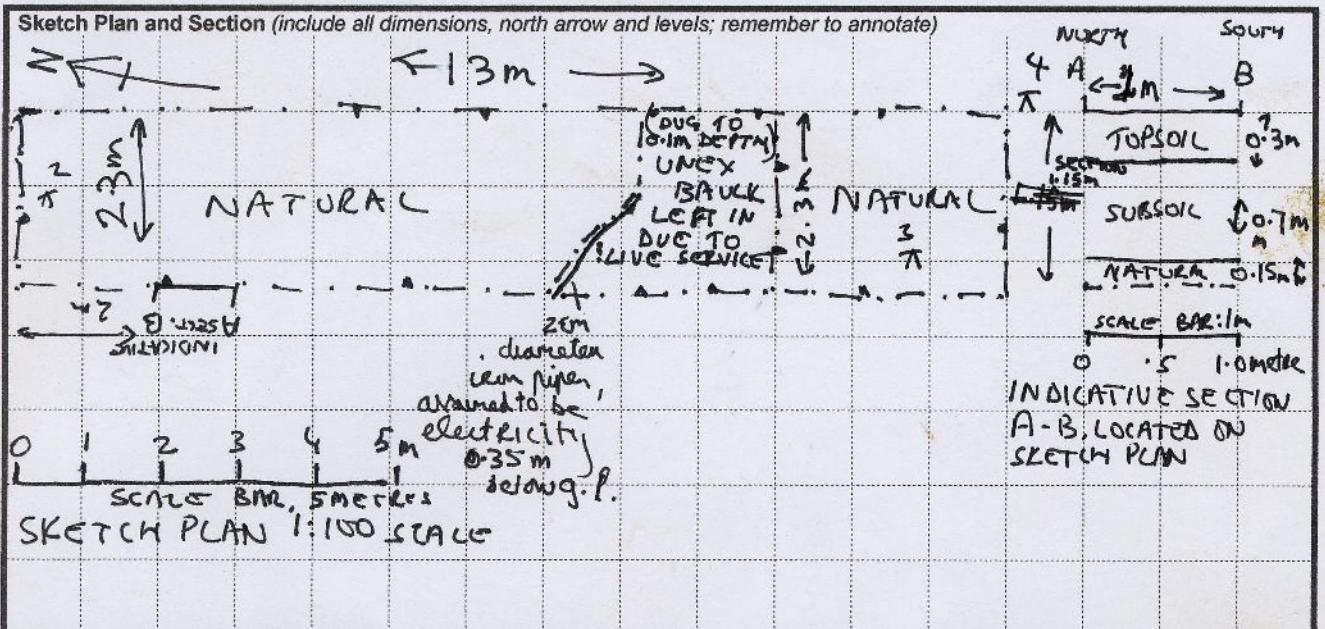 Sketch Plan and Section (include all dimensions, north arrow and levels; remember to annotate)
N
13m
2.3m
2
NATURAL
(DUG TO
0.1m DEPTH)
UNEX
BAULK
LEFT IN
DUE TO
LIVE SERVICE
2.3m
NATURAL
3
4
2m
A SECT. B
INDICATIVE
2cm
diameter
iron pipe,
assumed to be
electricity,
0.35m
below g.l.
0 1 2 3 4 5m
SCALE BAR, 5 METRES
SKETCH PLAN 1:100 SCALE
NORTH SOUTH
A 1m B
TOPSOIL 0.3m
SECTION
1.15m
SUBSOIL 0.7m
m
NATURAL 0.15m
SCALE BAR: 1m
0 .5 1.0 metre
INDICATIVE SECTION
A-B, LOCATED ON
SKETCH PLAN